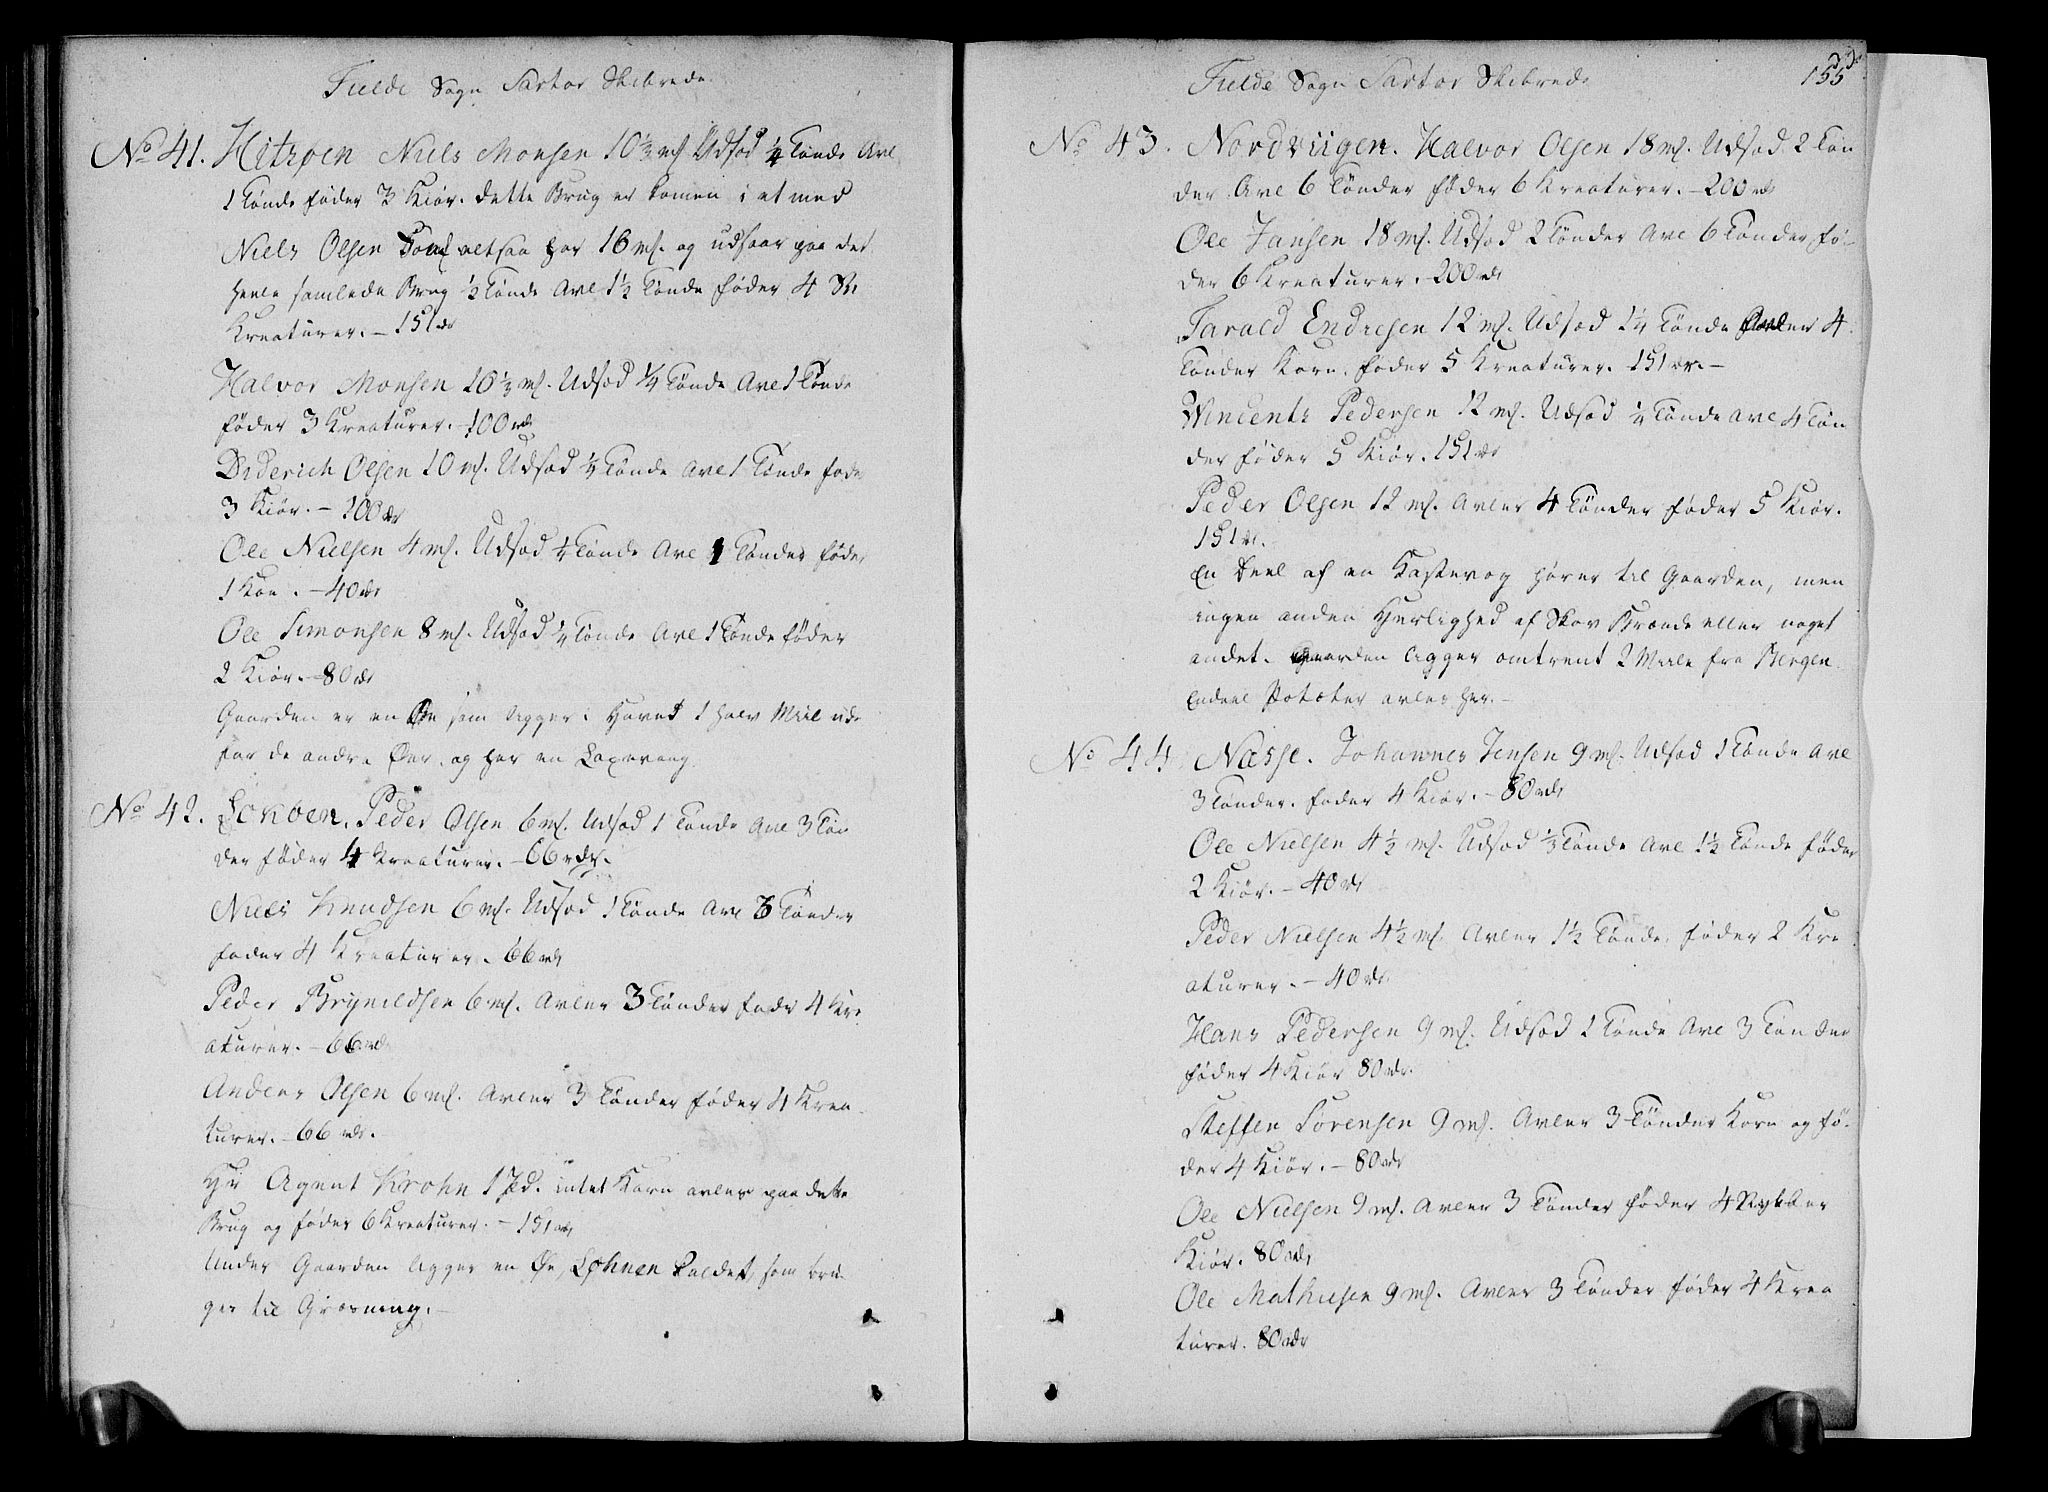 Fielde Sogn Sartor Skibrede
No 41. Hitzøen Niels Monsen 10 1/2 mk Udsæd 1/4 Tønde Avl
1 Tønde føder 3 Kiør. dette Brug er kommen i et med
Niels Olsen Som altsaa har 16 mk. og udsaar paa det
heele samlede Brug 1/2 Tønde Avl 1 1/2 Tønde føder 4 St.
Kreaturer. – 151 rdr
Halvor Monsen 10 1/2 mk. Udsæd 1/4 Tønde Avl 1 Tønde
føder 3 Kreaturer. – 100 rdr
Diderich Olsen 10 mk. Udsæd 1/4 Tønde Avl 1 Tønde føder
3 Kiør. – 100 rdr
Ole Nielsen 4 mk. Udsæd 1/4 Tønde Avl 1 Tønder føder
1 Koe. – 40 rdr
Ole Simonsen 8 mk. Udsæd 1/4 Tønde Avl 1 Tønde føder
2 Kiør. – 80 rdr
Gaarden er en Øe som ligger i Havet 1 halv Miil uden
for de andre Øer, og har en Laxevaag
No 42. Lokøen. Peder Olsen 6 mk. Udsæd 1 Tønde Avl 3 Tøn
der føder 4 Kreaturer. – 66 rdr.
Niels Knudsen 6 mk. Udsæd 1 Tønde Avl 3 Tønder
føder 4 Kreaturer. 66 rdr
Peder Brynildsen 6 mk. Avler 3 Tønder føder 4 Kre
aturer. – 66 rdr
Anders Olsen 6 mk. Avler 3 Tønder føder 4 Krea
turer. – 66 rdr.
Hr Agent Krohn 1 Pd. intet Korn avles paa dette
Brug og føder 6 Kreaturer. – 151 rdr
Under Gaarden ligger en Øe, Løhnen kaldet, som bru-
ges til Græsning. –
155
Fielde Sogn Sartor Skibrede
No 43. Nordviigen. Halvor Olsen 18 mk. Udsæd 2 Tøn
der Avl 6 Tønder føder 6 Kreaturer. – 200 rdr
Ole Jansen 18 mk. Udsæd 2 Tønder Avl 6 Tønder fø-
der 6 Kreaturer. – 200 rdr
Tarald Endresen 12 mk. Udsæd 1 1/4 Tønde Avler 4
Tønder Korn. føder 5 Kreaturer. 151 rdr. –
Wincents Pedersen 12 mk. Udsæd 1/4 Tønde Avl 4 Tøn
der føder 5 Kiør. 151 rdr
Peder Olsen 12 mk. Avler 4 Tønder føder 5 Kiør.
151 rdr.
En Deel af en Kastevog hører til Gaarden, men
ingen anden Herlighed af Skov Brænde eller noget
andet. Gaarden ligger omtrent 2 Miile fra Bergen
Endeel Potæter avles her. –
No 44 Næsse. Johannes Jensen 9 mk. Udsæd 1 Tønde Avl
3 Tønder. føder 4 Kiør. – 80 rdr
Ole Nielsen 4 1/2 mk. Udsæd 1/2 Tønde Avl 1 1/2 Tønde føder
2 Kiør. – 40 rdr
Peder Nielsen 4 1/2 mk. Avler 1 1/2 Tønde, føder 2 Kre
aturer. – 40 rdr.
Hans Pedersen 9 mk. Udsæd 1 Tønde Avl 3 Tønder
føder 4 Kiør 80 rdr.
Steffen Sørensen 9 mk. Avler 3 Tønder Korn og fø-
der 4 Kiør. – 80 rdr
Ole Nielsen 9 mk. Avler 3 Tønder føder 4 Stykker
Kiør. 80 rdr
Ole Mathiesen 9 mk. Avler 3 Tønder føder 4 Krea
turer. 80 rdr